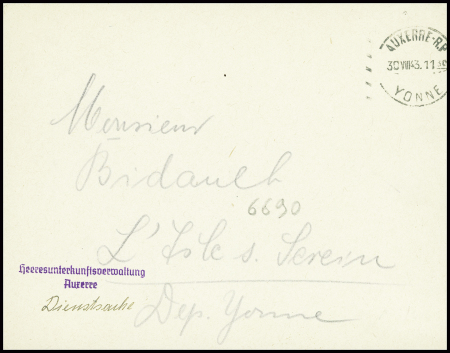 AUXERRE-R.P.
30 VIII 43. 11 35
YONNE
Monsieur
Bidault
6690
L'Isle s. Serein
Dep. Yonne
Heeresunterkunftsverwaltung
Auxerre
Dienstsache